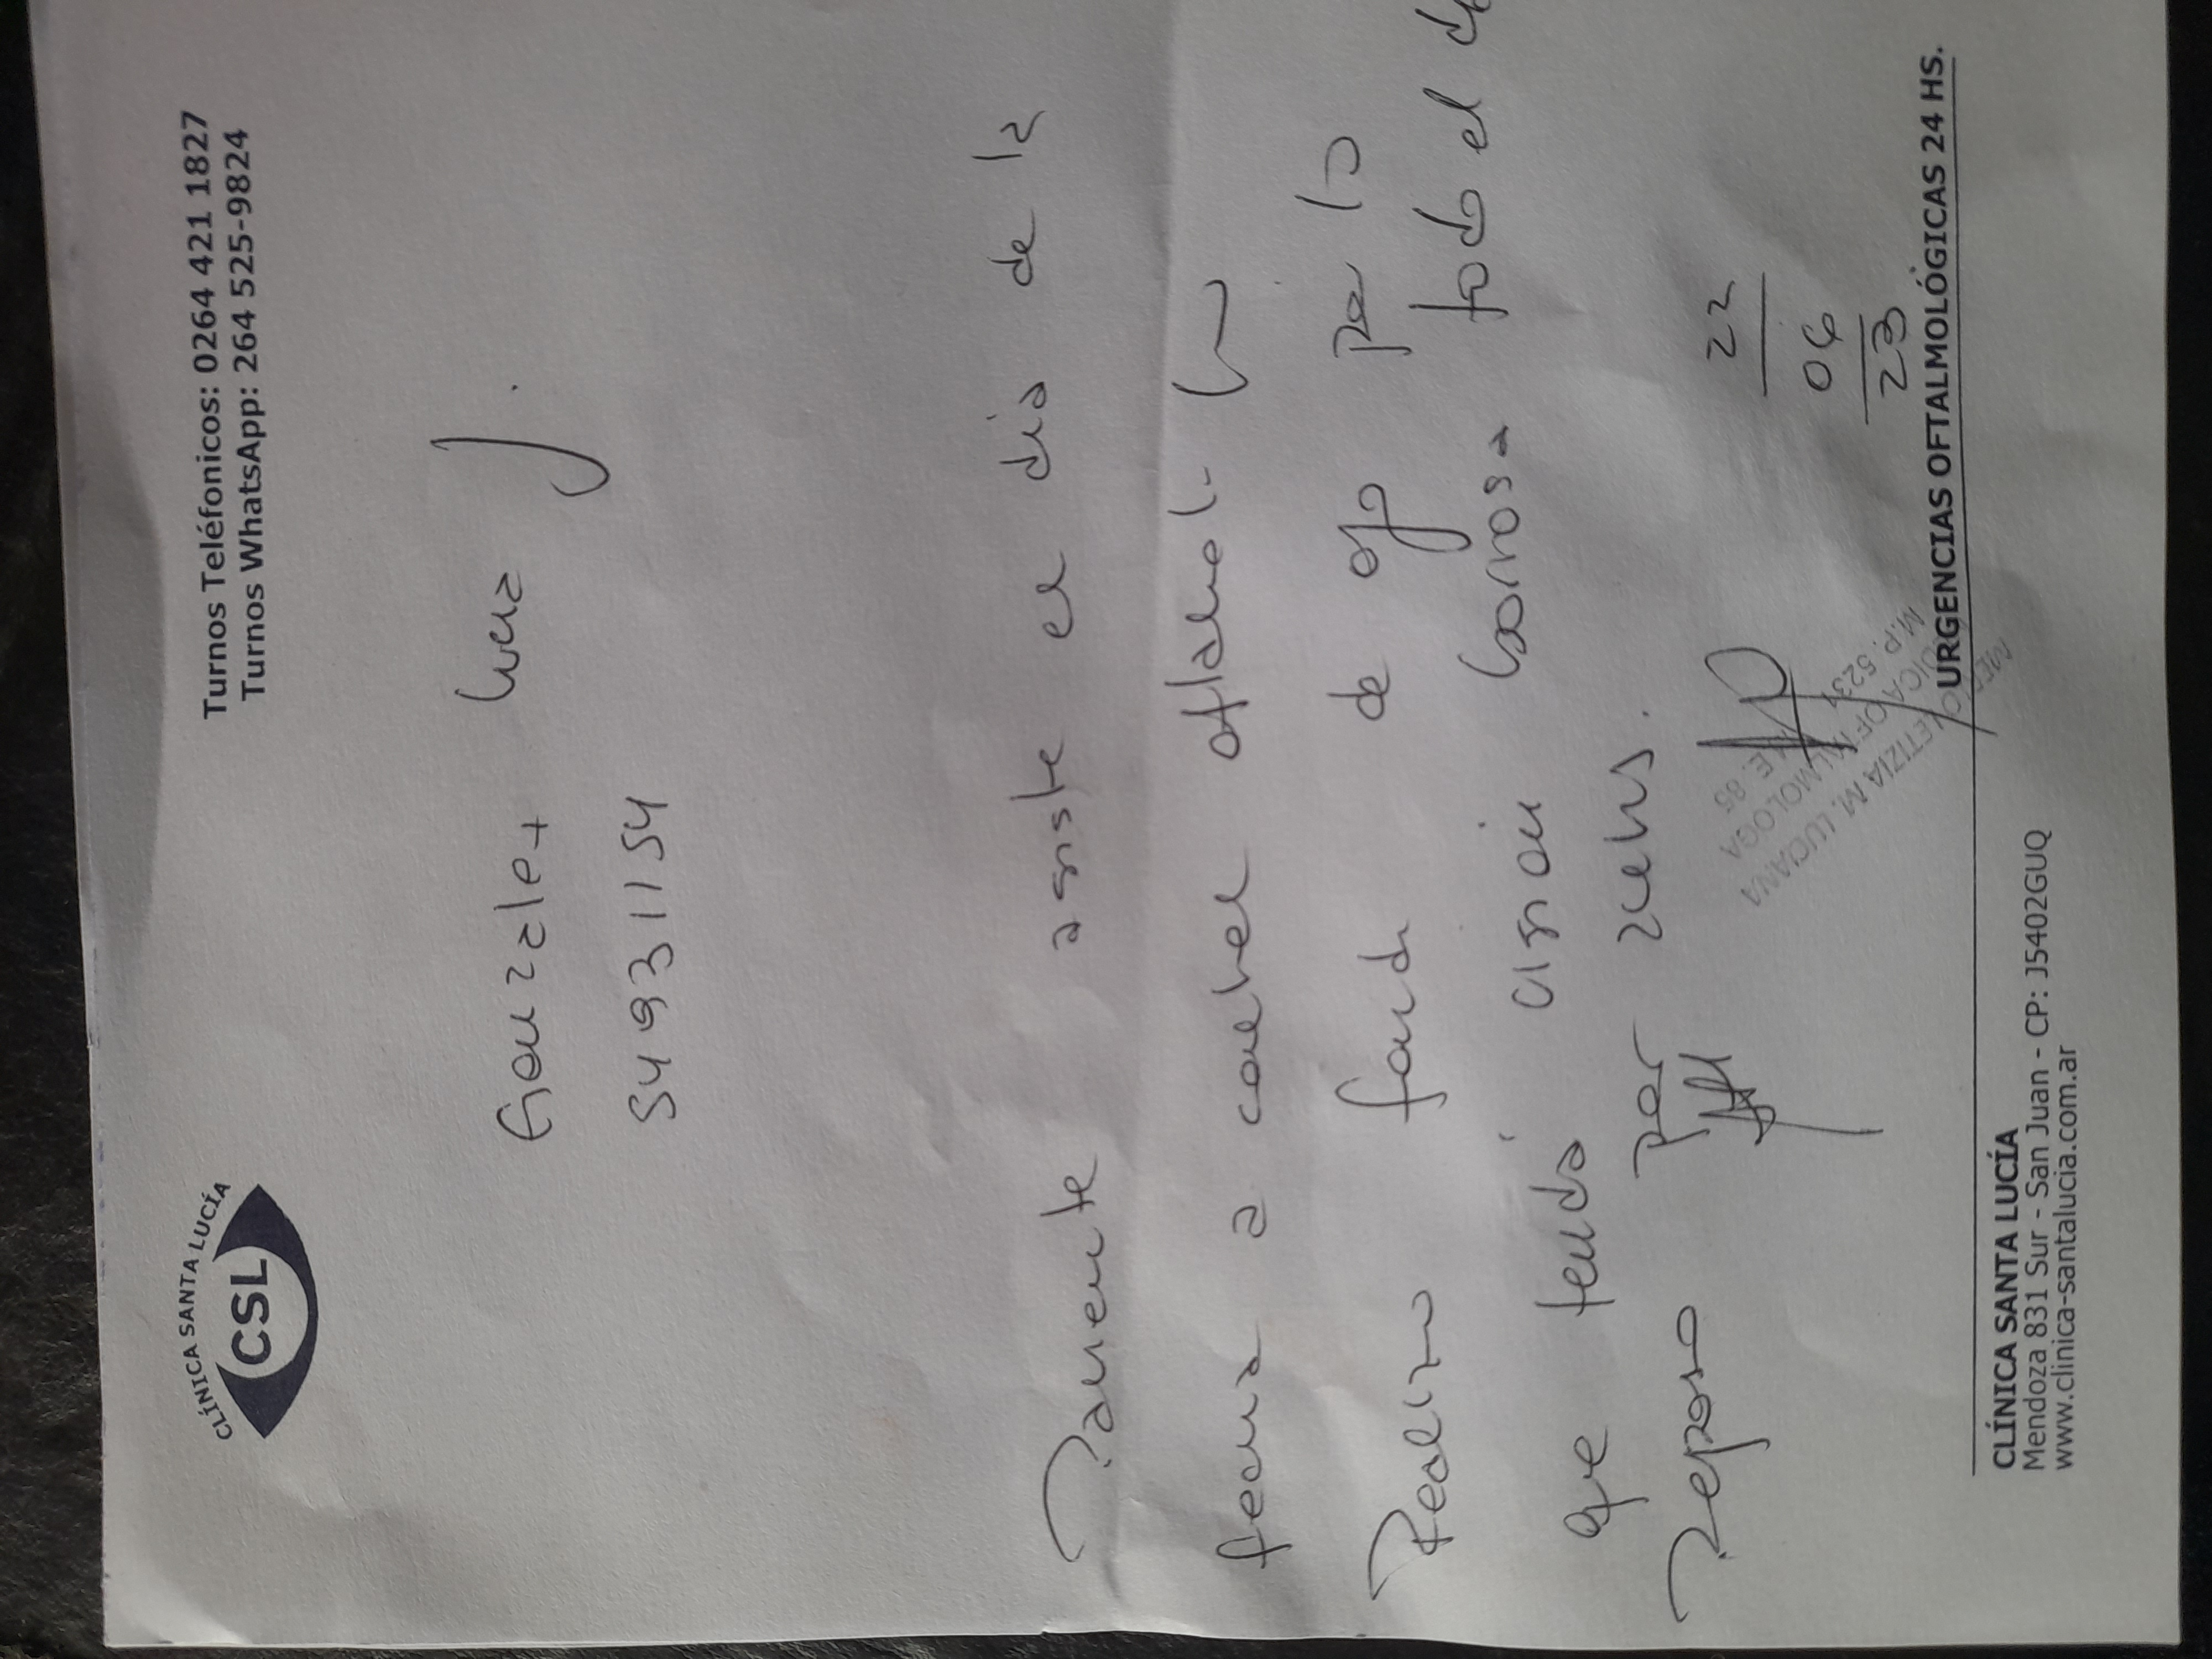 CLÍNICA SANTA LUCÍA
CSL
Turnos Teléfonicos: 0264 421 1827
Turnos WhatsApp: 264 525-9824
Gonzalez Luz J.
54931154
Paciente asiste el dia de la
fecha a control oftalmol.
Realizo fondo de ojo por lo
que tendá visión borrosa todo el
Reposo por 24hs.
22
06
23
LETIZIA M. LUCIANA
URGENCIAS OFTALMOLÓGICAS 24 HS.
CLÍNICA SANTA LUCÍA
Mendoza 831 Sur - San Juan - CP: J5402GUQ
www.clinica-santalucia.com.ar